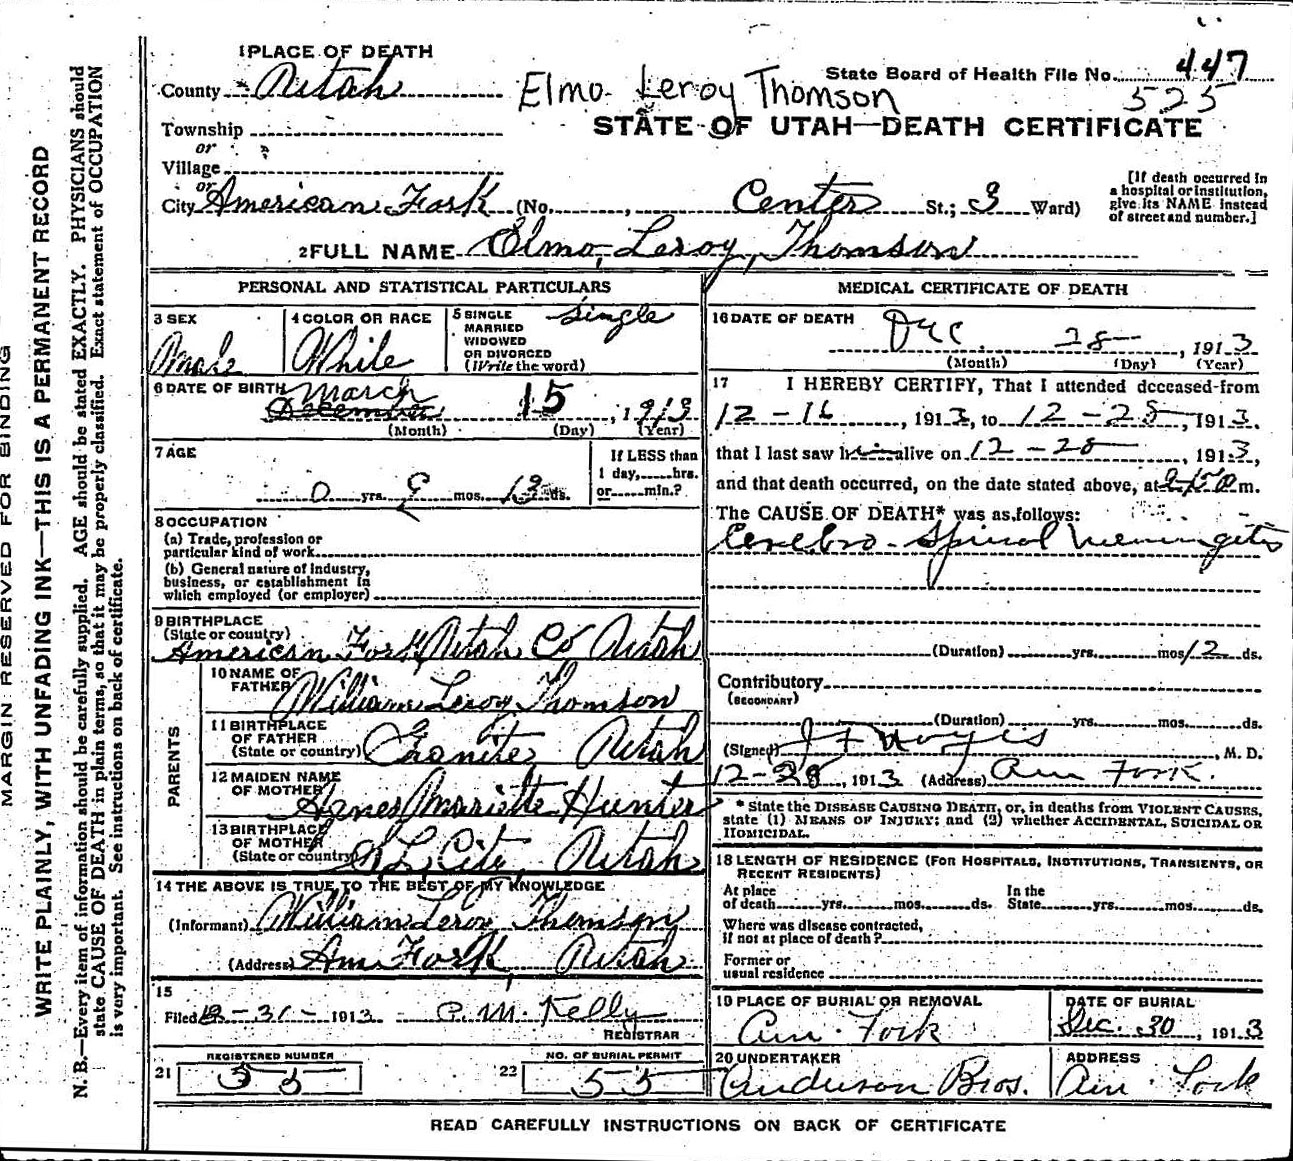 MARGIN RESERVED FOR BINDING
WRITE PLAINLY, WITH UNFADING INK—THIS IS A PERMANENT RECORD
N. B.—Every item of information should be carefully supplied. AGE should be stated EXACTLY. PHYSICIANS should
state CAUSE OF DEATH in plain terms, so that it may be properly classified. Exact statement of OCCUPATION
is very important. See instructions on back of certificate.
1 PLACE OF DEATH
County Utah
Elmo Leroy Thomson
State Board of Health File No. 447
525
Township
STATE OF UTAH—DEATH CERTIFICATE
or
Village
or
City American Fork (No. , Center St.; 3 Ward)
[If death occurred in
a hospital or institution,
give its NAME instead
of street and number.]
2 FULL NAME Elmo, Leroy, Thomson
PERSONAL AND STATISTICAL PARTICULARS
3 SEX
Male
4 COLOR OR RACE
White
5 SINGLE
MARRIED
WIDOWED
OR DIVORCED
(Write the word)
Single
6 DATE OF BIRTH
March
December 15, 1913
(Month) (Day) (Year)
7 AGE
0 yrs. 9 mos. 13 ds.
If LESS than
1 day, hrs.
or min.?
8 OCCUPATION
(a) Trade, profession or
particular kind of work
(b) General nature of industry,
business, or establishment in
which employed (or employer)
9 BIRTHPLACE
(State or country)
American Fork, Utah Co Utah
PARENTS
10 NAME OF
FATHER
William Leroy Thomson
11 BIRTHPLACE
OF FATHER
(State or country) Granite, Utah
12 MAIDEN NAME
OF MOTHER
Agnes Mariette Hunter
13 BIRTHPLACE
OF MOTHER
(State or country) S. L. City, Utah
14 THE ABOVE IS TRUE TO THE BEST OF MY KNOWLEDGE
(Informant) William Leroy Thomson
(Address) Am. Fork, Utah
15
Filed 12-31- 1913 P. M. Kelly
REGISTRAR
21 REGISTERED NUMBER
55
22 NO. OF BURIAL PERMIT
55
MEDICAL CERTIFICATE OF DEATH
16 DATE OF DEATH
Dec. 28, 1913
(Month) (Day) (Year)
17 I HEREBY CERTIFY, That I attended deceased from
12-16, 1913, to 12-28, 1913,
that I last saw him alive on 12-28, 1913,
and that death occurred, on the date stated above, at m.
The CAUSE OF DEATH* was as follows:
Cerebro-Spinal Meningitis
(Duration) yrs. mos. 12 ds.
Contributory
(SECONDARY)
(Duration) yrs. mos. ds.
(Signed) J F Noyes, M. D.
12-28, 1913 (Address) Am Fork.
* State the DISEASE CAUSING DEATH, or, in deaths from VIOLENT CAUSES,
state (1) MEANS OF INJURY; and (2) whether ACCIDENTAL, SUICIDAL OR
HOMICIDAL.
18 LENGTH OF RESIDENCE (FOR HOSPITALS, INSTITUTIONS, TRANSIENTS, OR
RECENT RESIDENTS)
At place
of death yrs. mos. ds.
In the
State yrs. mos. ds.
Where was disease contracted,
if not at place of death?
Former or
usual residence
19 PLACE OF BURIAL OR REMOVAL
Am. Fork
DATE OF BURIAL
Dec. 30, 1913
20 UNDERTAKER
Anderson Bros.
ADDRESS
Am. Fork
READ CAREFULLY INSTRUCTIONS ON BACK OF CERTIFICATE